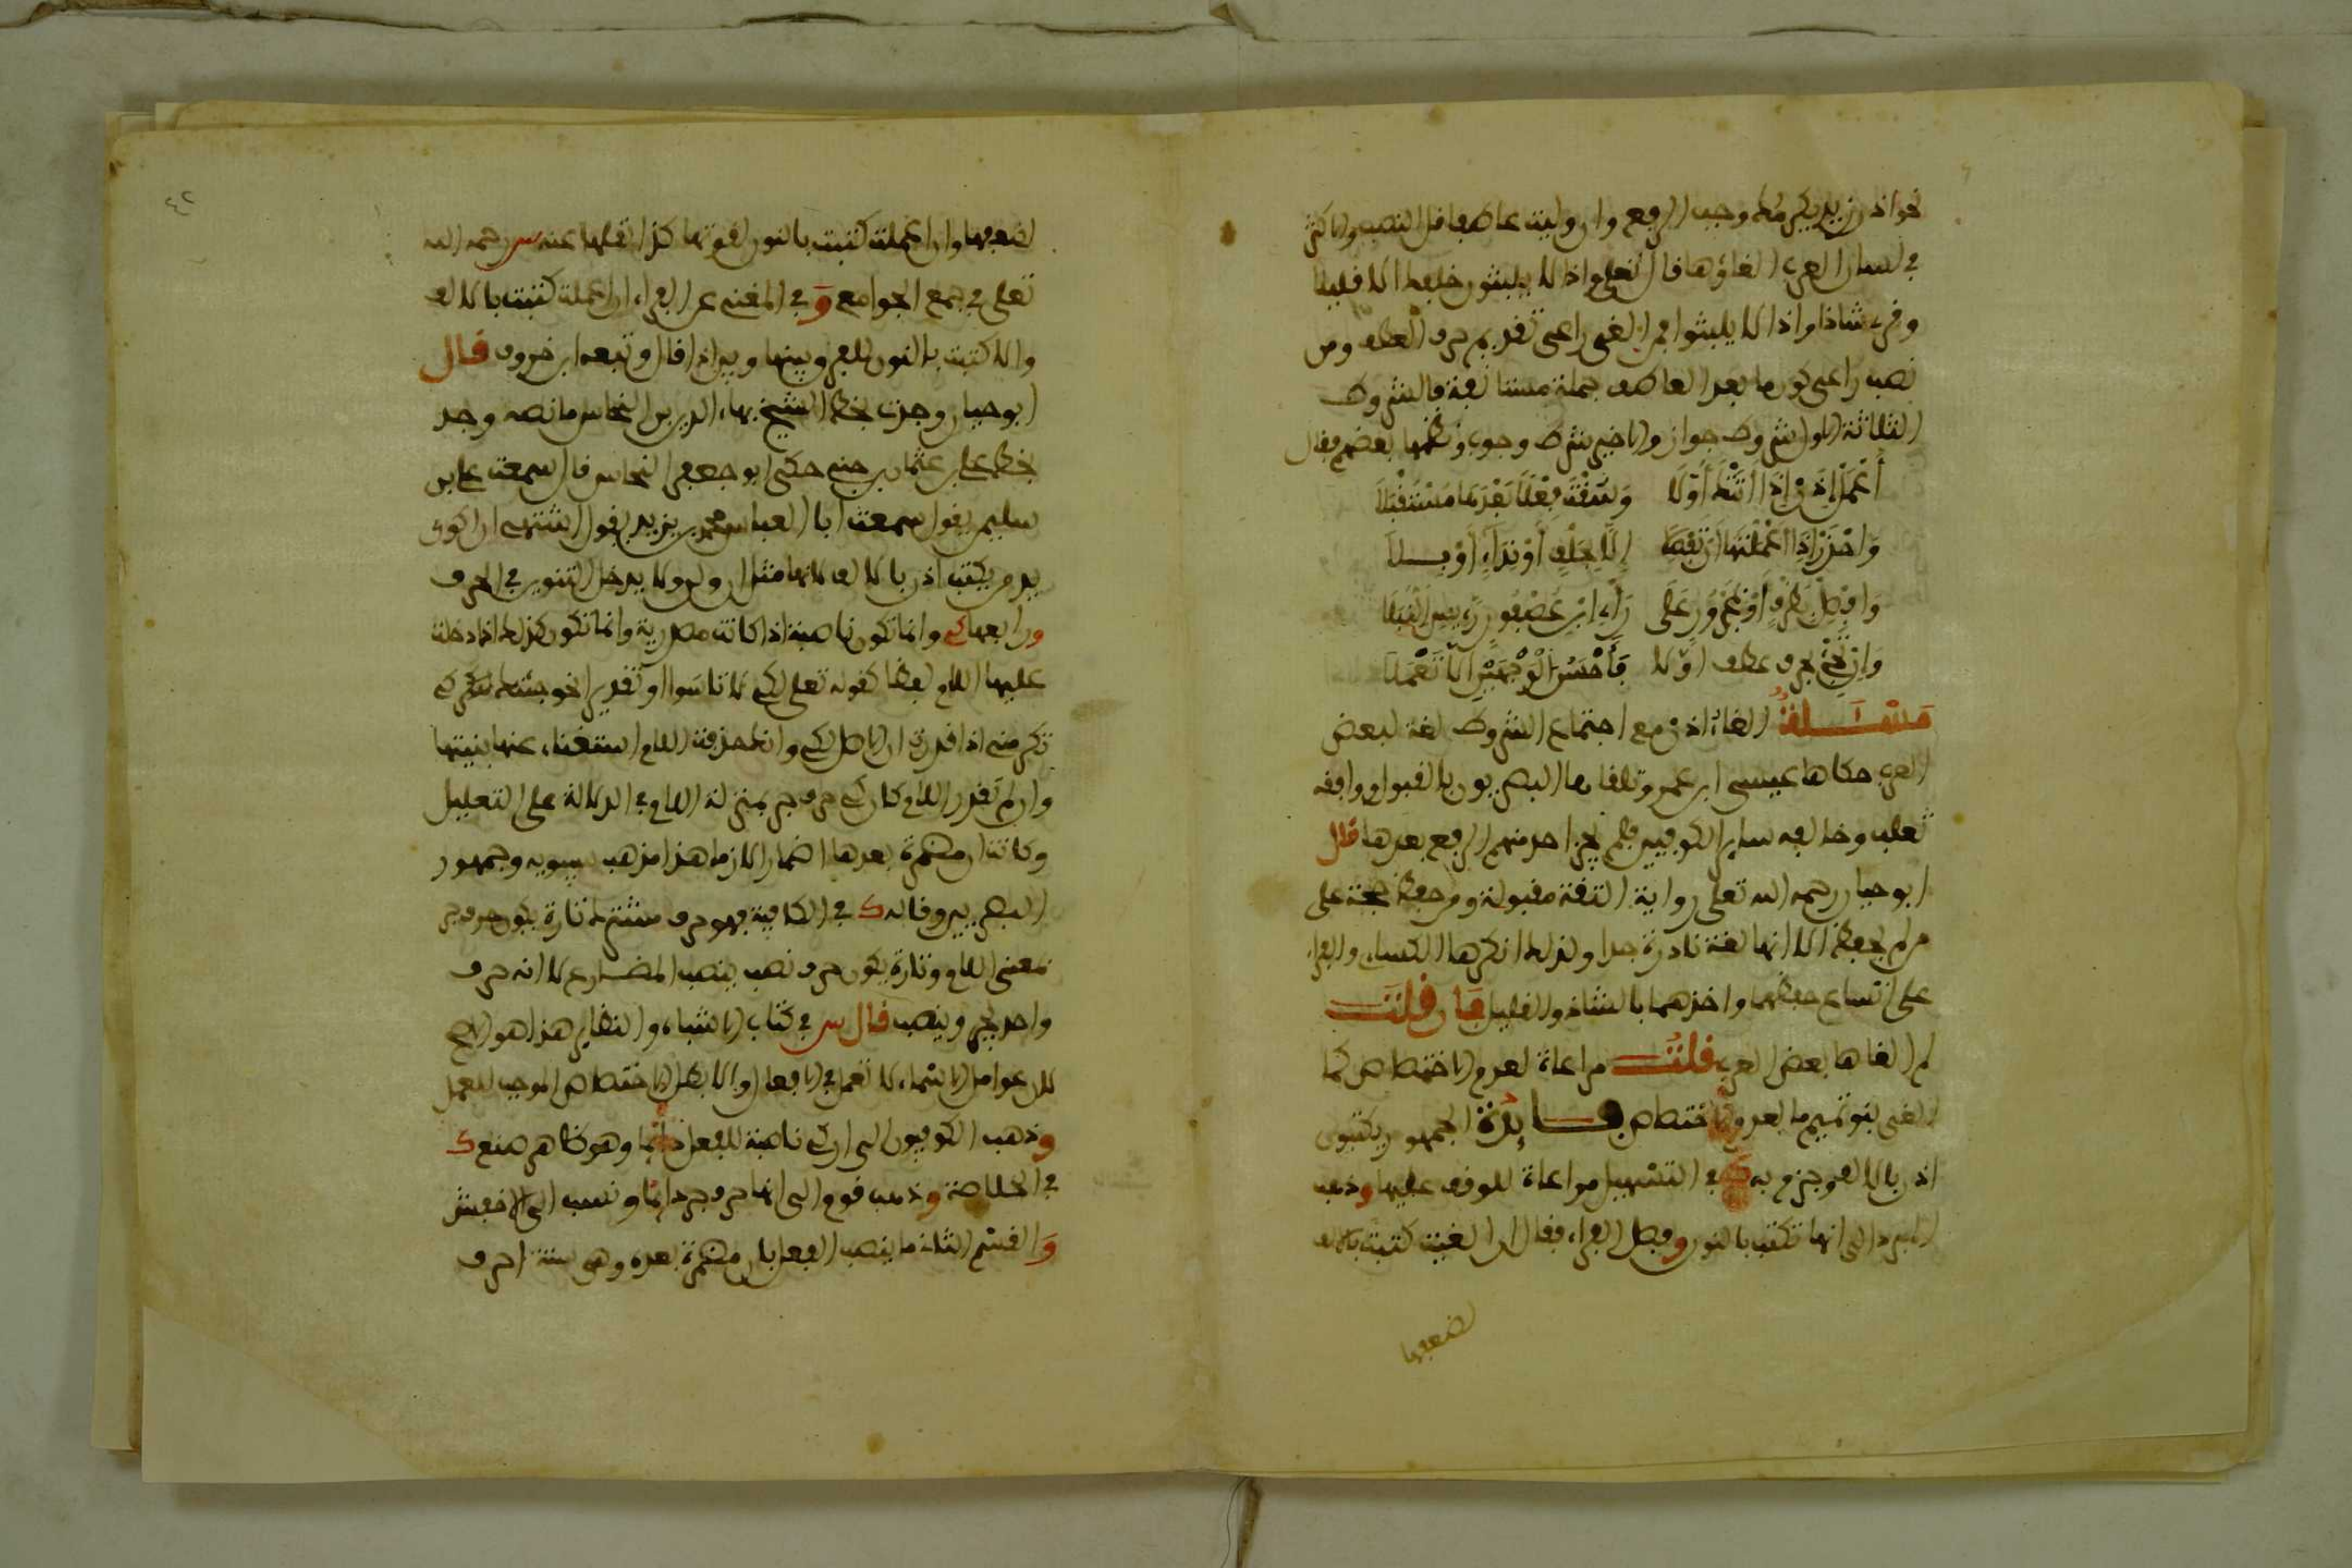 نحو اذن زيد يكرمك وجب الرفع وان وليت عاطفا قل النصب والاكثر
في لسان العرب الغاؤها قال تعلى واذا لا يلبثون خلفك الا قليلا
وقرئ شاذا واذا لا يلبثوا فمن الغى راعى تقديم حرف العطف ومن
نصب راعى كون ما بعد العاطف جملة مستانفة فالشروط
الثلاثة الاول شروط جواز والاخير شرط وجوب ونظمها بعضهم فقال
أَعْمِلْ إِذَنْ إِذَا أَتَتْكَ أَوَّلَا وَسُقْتَ فِعْلًا بَعْدَهَا مُسْتَقْبَلَا
وَاحْذَرْ إِذَا أَعْمَلْتَهَا أَنْ تَفْصِلَا إِلَّا بِحَلْفٍ أَوْ نِدَاءٍ أَوْ بِلَا
وَافْصِلْ بِظَرْفٍ أَوْ بِمَجْرُورٍ عَلَى رَأْيِ ابْنِ عُصْفُورٍ رَئِيسِ النُّبَلَا
وَإِنْ تَجِئْ بحرف عطف اوّلا فَأَحْسَنُ الْوَجْهَيْنِ أَلَّا تَعْمَلَا
مَسْـــأَلَةٌ الغاء اذن مع اجتماع الشروط لغة لبعض
العرب حكاها عيسى ابن عمر وتلقاها البصريون بالقبول ووافقه
ثعلب وخالفه ساير الكوفيين فلم يجز احد منهم الرفع بعدها قال
ابو حيان رحمه الله تعلى رواية الثقة مقبولة ومن حفظ حجة على
من لم يحفظ الا انها لغة نادرة جدا ولذلك انكرها الكساي والفراء
على اتساع حفظهما واخذهما بالشاذ والقليل فان قلت
لم الغاها بعض العرب قلت مراعاة لعدم الاختصاص كما
الغى بنو تميم ما لعدم الاختصاص فــايدة الجمهور يكتبون
اذن بالالف وجزم به ك في التسهيل مراعاة للوقف عليها وذهب
المبرد الى انها تكتب بالنون وفصل الفراء فقال ان الغيت كتبت بالالف
لضعفها
لضعفها وان اعملت كتبت بالنون لقوتها كذا نقلها عنه س رحمه الله
تعلى في جمع الجوامع وَفي المغني عن الفراء ان اعملت كتبت بالالف
والا كتبت بالنون للفرق بينها وبين اذا قال وتبعه ابن خروف قال
ابو حيان وجدت بخط الشيخ بهاء الدين بن النحاس ما نصه وجد
بخط علي بن عثمان بن جني حكى ابو جعفر النحاس قال سمعت علي بن
سليمن يقول سمعت ابا العباس محمد بن يزيد يقول اشتهي ان اكوي
يد من يكتب اذن بالالف لانها مثل ان ولن ولا يدخل التنوين في الحرف
ورابعها كي وانما تكون ناصبة اذا كانت مصدرية وانما تكون كذلك اذا دخلت
عليها اللام لفظا كقوله تعلى لكي لا تاسوا او تقديرا نحو جئتك كي
تكرمني اذا قدرت ان الاصل لكي وانك حذفت اللام استغناء عنها بنيتها
وان لم تقدر اللام كان كي حرف جر بمنزلة اللام في الدلالة على التعليل
وكانت ان مضمرة بعدها اضمارا لازما هذا مذهب سيبويه وجمهور
البصريين وقال ك في الكافية فهو حرف مشترك تارة يكون حرف جر
بمعنى اللام وتارة يكون حرف نصب ينصب المضارع لا انه حرف
واحد يجر وينصب قال س في كتاب الاشباه والنظاير هذا هو الاصح
لان عوامل الاسماء لا تعمل في الافعال والا بطل الاختصاص الموجب للعمل
وذهب الكوفيون الى ان كي ناصبة للفعل دائما وهو ظاهر صنع ك
في الخلاصة وذهب قوم الى انها حرف جر دائما ونسب الى الاخفش
وَالقسم الثاني ما ينصب الفعل بان مضمرة بعده وهي ستة احرف
٤٢